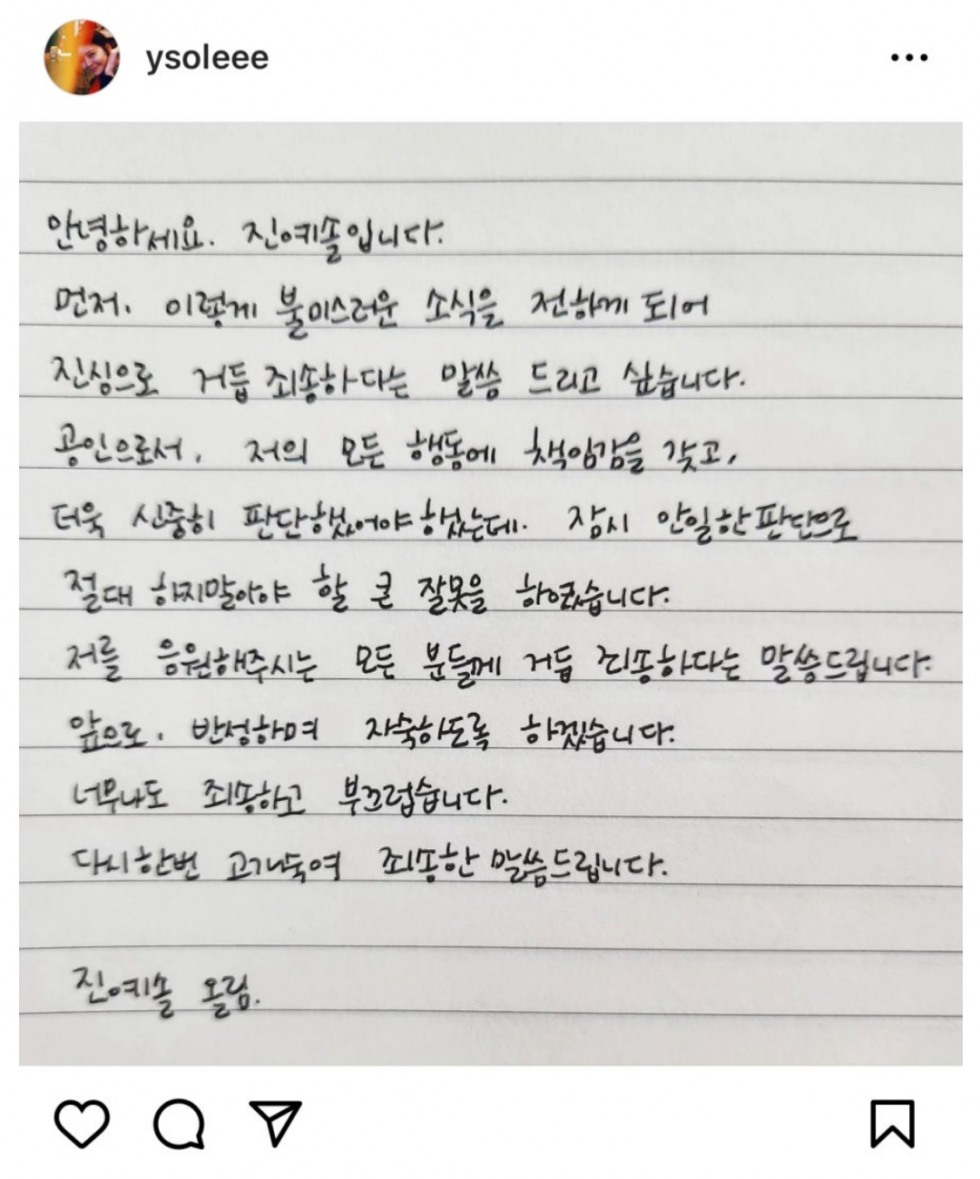 ysoleee
안녕하세요. 진예솔입니다.
먼저, 이렇게 불미스러운 소식을 전하게 되어
진심으로 거듭 죄송하다는 말씀 드리고 싶습니다.
공인으로서, 저의 모든 행동에 책임감을 갖고,
더욱 신중히 판단했었어야 했는데. 잠시 안일한 판단으로
절대 하지말아야 할 큰 잘못을 하였습니다.
저를 응원해주시는 모든 분들께 거듭 죄송하다는 말씀드립니다.
앞으로, 반성하며 자숙하도록 하겠습니다.
너무나도 죄송하고 부끄럽습니다.
다시한번 고개숙여 죄송한 말씀드립니다.
진예솔 올림.